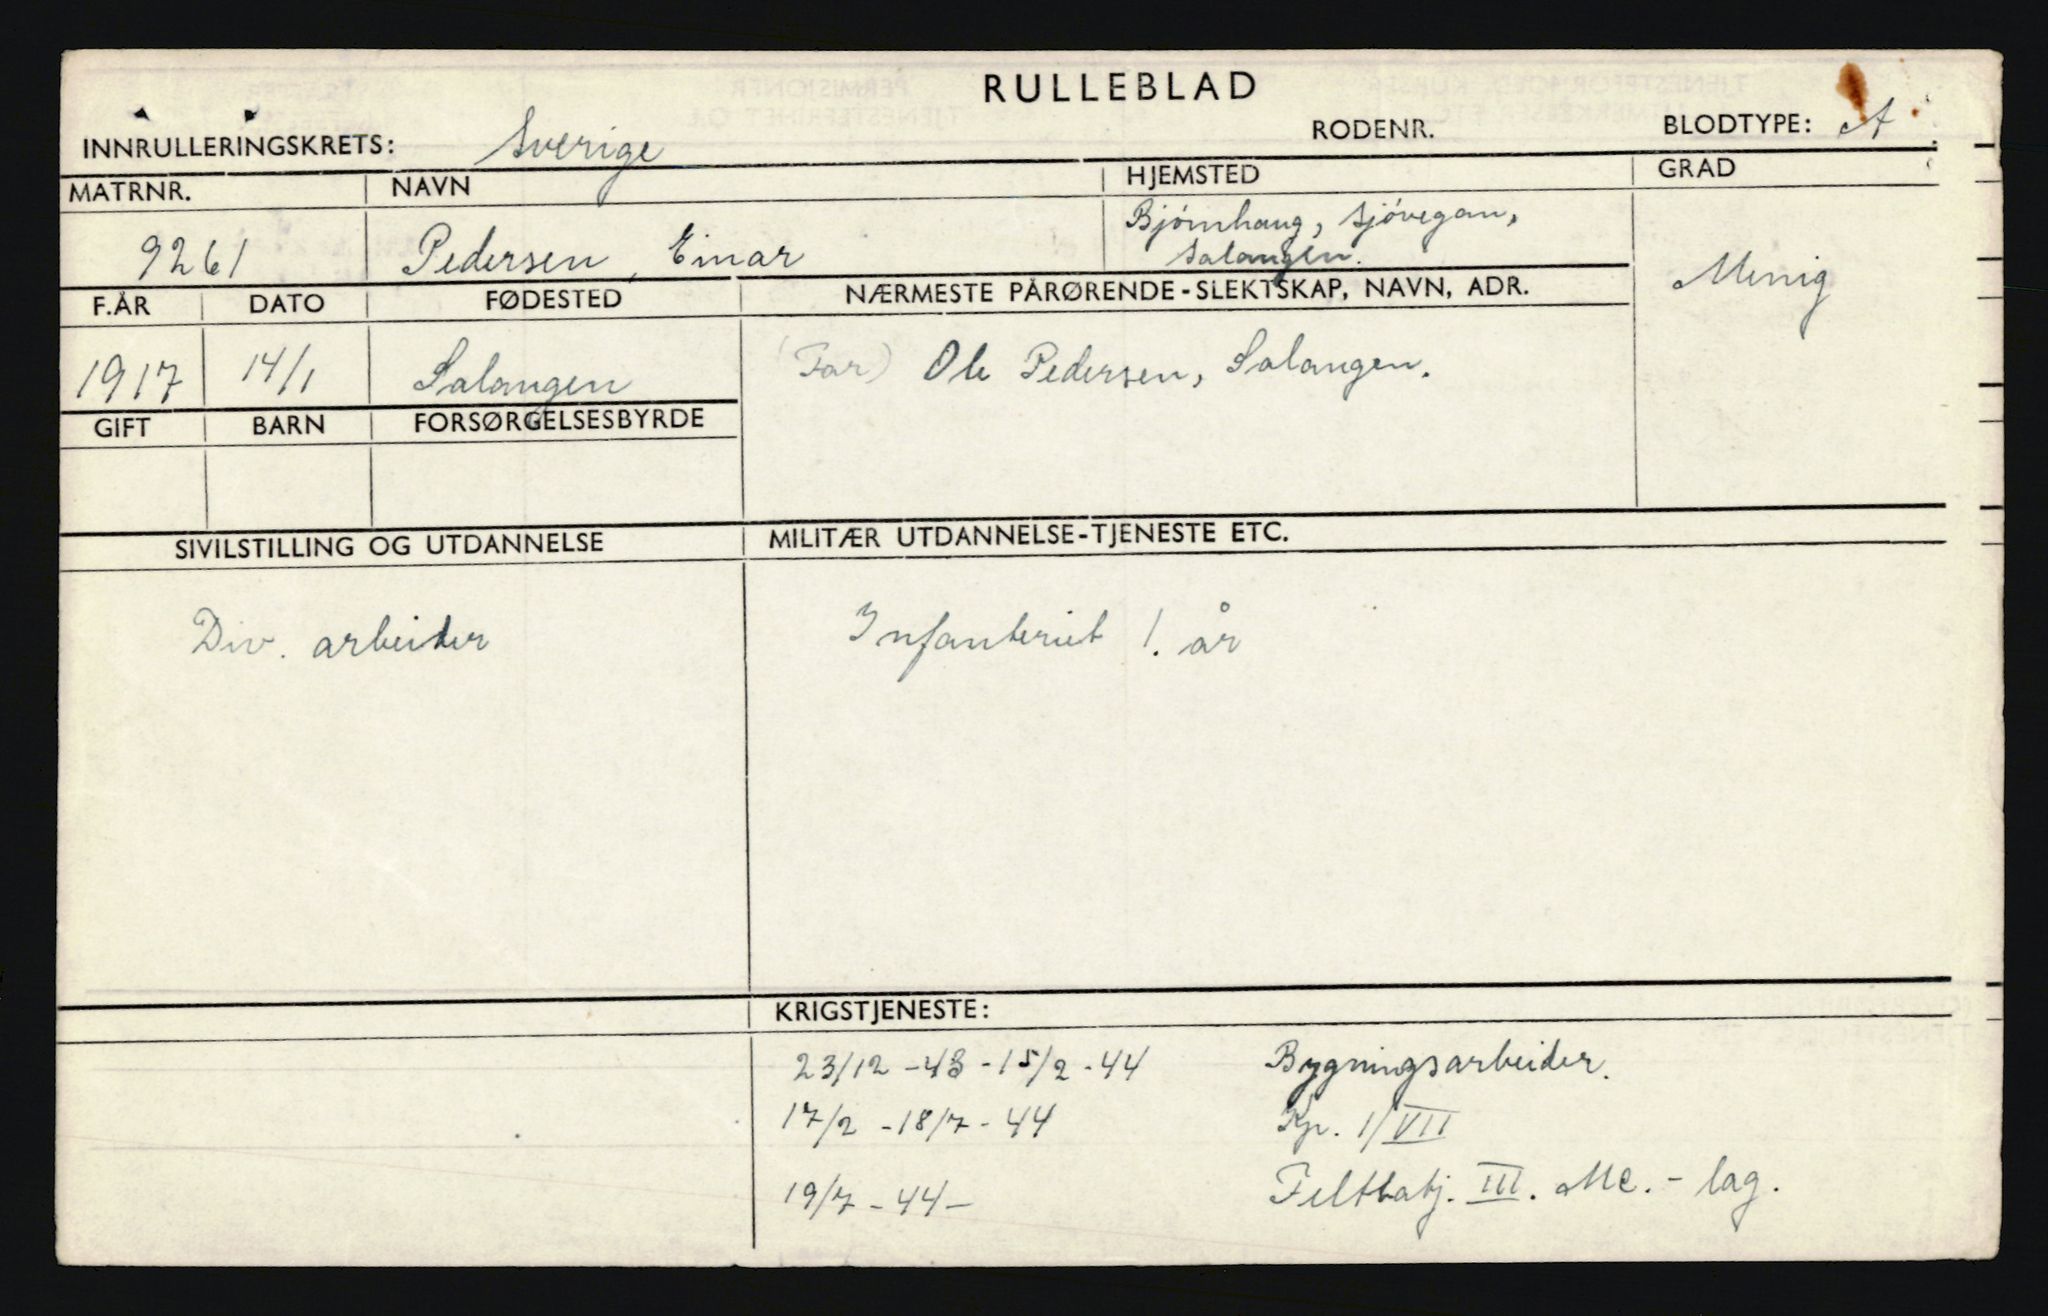 RULLEBLAD
INNRULLERINGSKRETS: Sverige RODENR. BLODTYPE: A
MATRNR. NAVN HJEMSTED GRAD
9261 Pedersen, Einar Bjørnhaug, Sjøvegan, Salangen. Menig
F.ÅR DATO FØDESTED NÆRMESTE PÅRØRENDE-SLEKTSKAP, NAVN, ADR.
1917 14/1 Salangen (Far) Ole Pedersen, Salangen.
GIFT BARN FORSØRGELSESBYRDE
SIVILSTILLING OG UTDANNELSE MILITÆR UTDANNELSE-TJENESTE ETC.
Div. arbeider Infanteriet 1. år
KRIGSTJENESTE:
23/12 -43 - 15/2 - 44 Bygningsarbeider.
17/2 - 18/7 - 44 Kp. 1/VII
19/7 - 44 - Feltbatj. III. Mc. - lag.